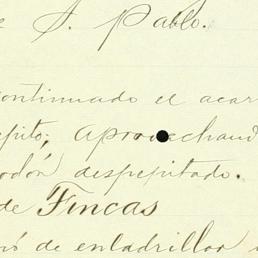 e S. Pablo.
continuado el acar
epito; aprovechand
odón despepitado.
de Fincas
nó de enladrillar